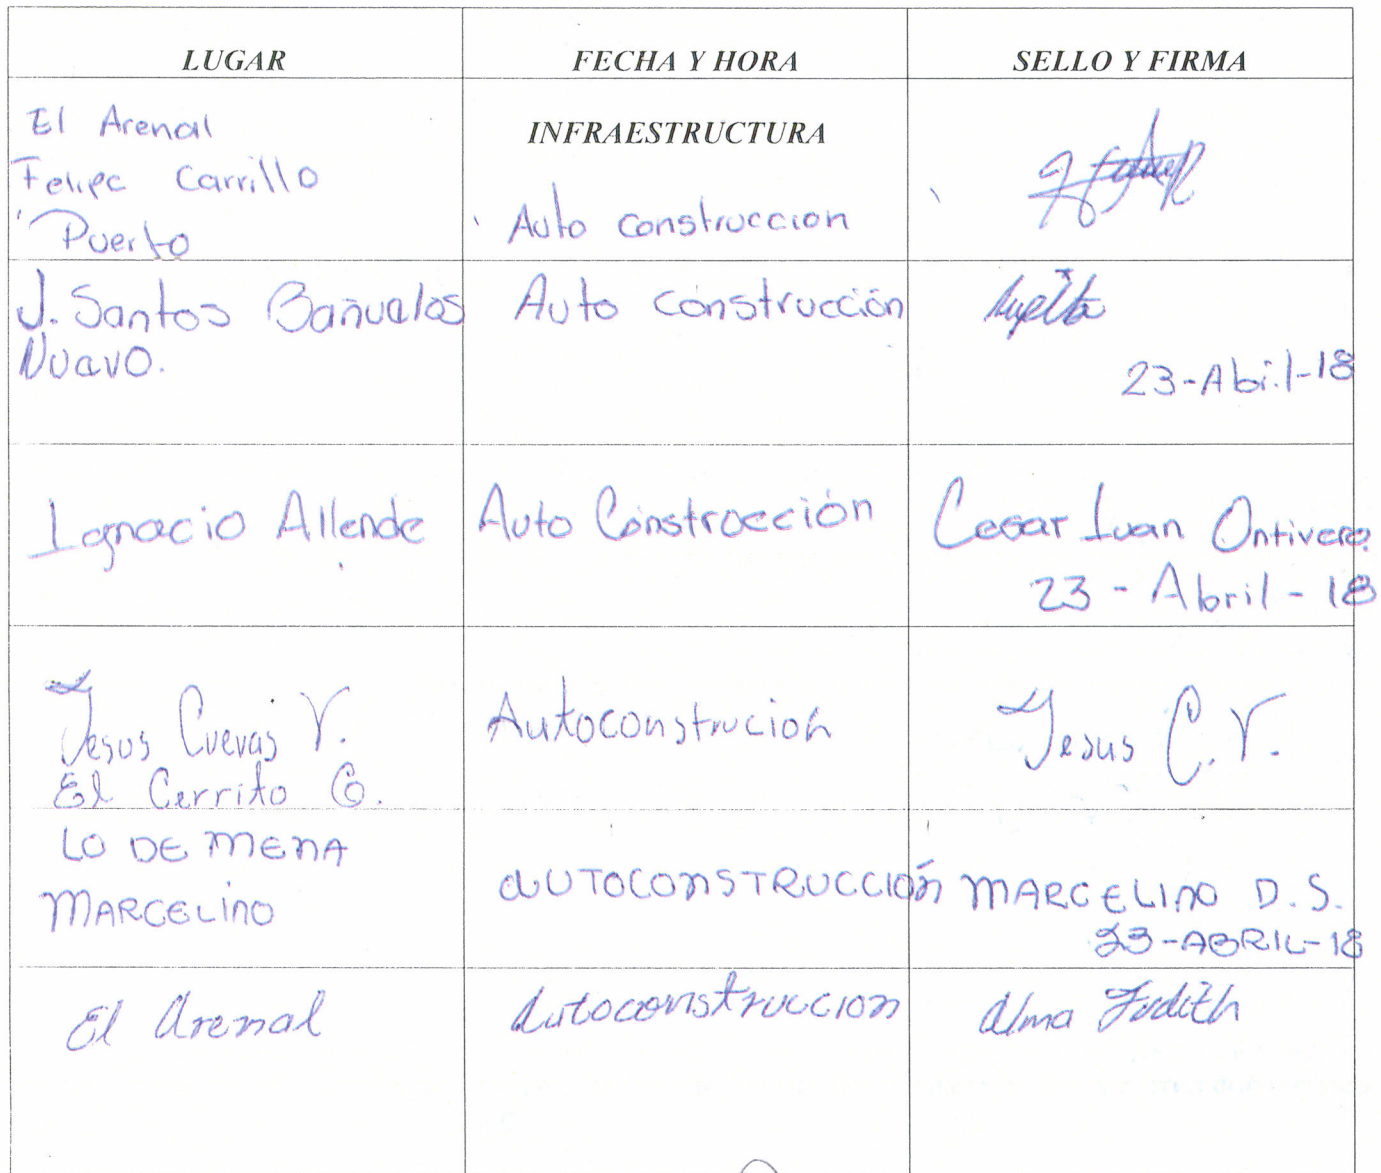 LUGAR FECHA Y HORA SELLO Y FIRMA
El Arenal
Felipe Carrillo
Puerto
INFRAESTRUCTURA
Auto construccion
J. Santos Bañuelos
Nuevo.
Auto construcción
23-Abil-18
Ignacio Allende
Auto Construcción
Cesar Ivan Ontivero
23 - Abril - 18
Jesus Cuevas V.
El Cerrito G.
Autoconstrucion
Jesus C. V.
LO DE MENA
MARCELINO
AUTOCONSTRUCCIÓN
MARCELINO D.S.
23-ABRIL-18
El Arenal
Autoconstruccion
Alma Judith